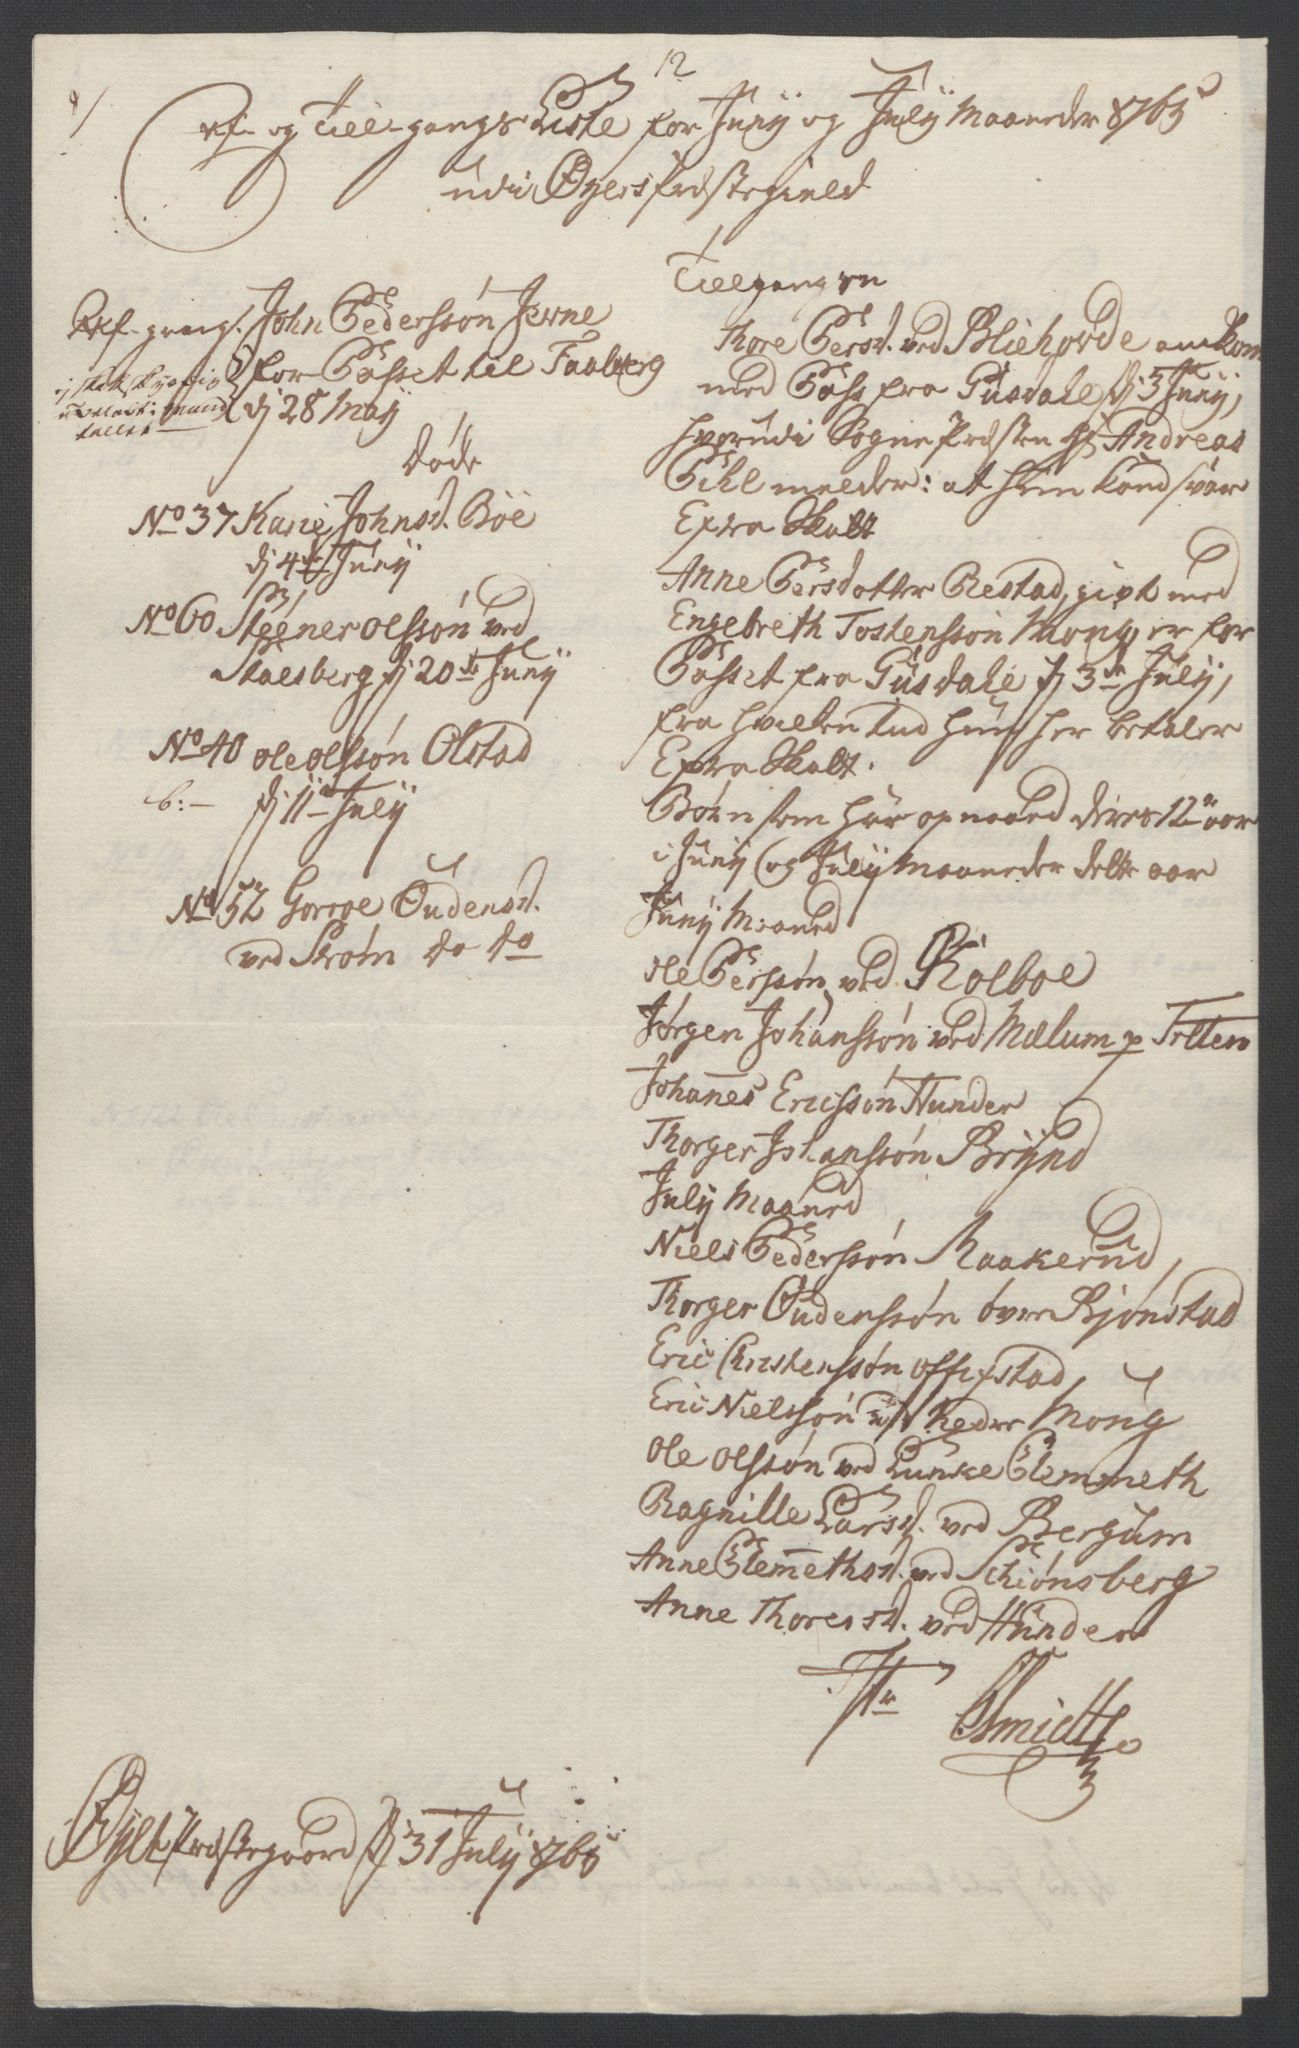 12
9/
Af- og Till-gangs Liste for Junij og Julij Maaneder 1763
udi Øyers Præstegield
Af-gangs. John Pederssøn Jevne
for Passet til Faaberg
dj 28 Maij
døde
No 37 Karie Johnsd. Bøe
dj 4de Junij
No 60 Steener olssøn ved
Stalsberg dj 20de Junij
No 40 ole olssøn Olstad
b:- dj 11te Julij
No 52 Gorroe Oudensd.
ved Strøm do do
Tillgangen
Thore Persd. ved Bliehovde ankom
med Pass fra Gusdale dj 5 Junij,
hvorudi Sogne Præsten Hr Andreas
Pihl melder: at hun kand svar
Extra Skatt
Anne Persdotter Restad, gift med
Engebreth Tostenssøn Mong er for
Passet fra Gusdale dj 3de Julij,
fra hvilken tid hun her betaler
Extra Skatt.
Børn som har opnaaed deres 12te aar
i Junij og Julij Maaneder dette aar
Junij Maaned
ole Perssøn ved Rolboe
Jørgen Johanssøn ved Mælum p Tretten
Johan̄es Ericssøn Hunder
Thorger Johanssøn Brÿnd
Julij Maaned
Niels Pederssøn Raakerud,
Thorger Oudenssøn øvre Bjønstad
Eric Christenssøn Offigstad
Eric Nielssøn Nedre Mong
Ole olssøn ved Lunke Clemmeth
Ragnille Larsd. ved Bergum
Anne Clem̄ethsd. ved Schiønsberg
Anne Thoresd. ved Hunder
Schmidt
Øyer Præstegaard dj 31 Julij 1763